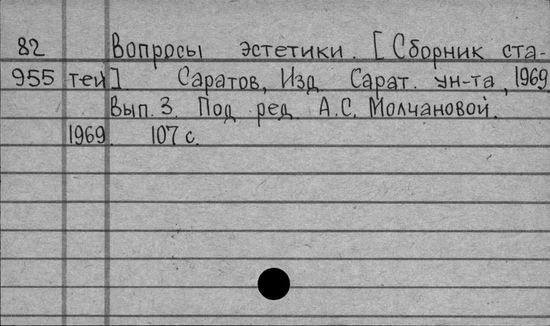 82 Вопросы эстетики. [Сборник ста-
955 тей]. Саратов, Изд. Сарат. ун-та, 1969
Вып. 3. Под ред. А.С. Молчановой.
1969. 107 с.